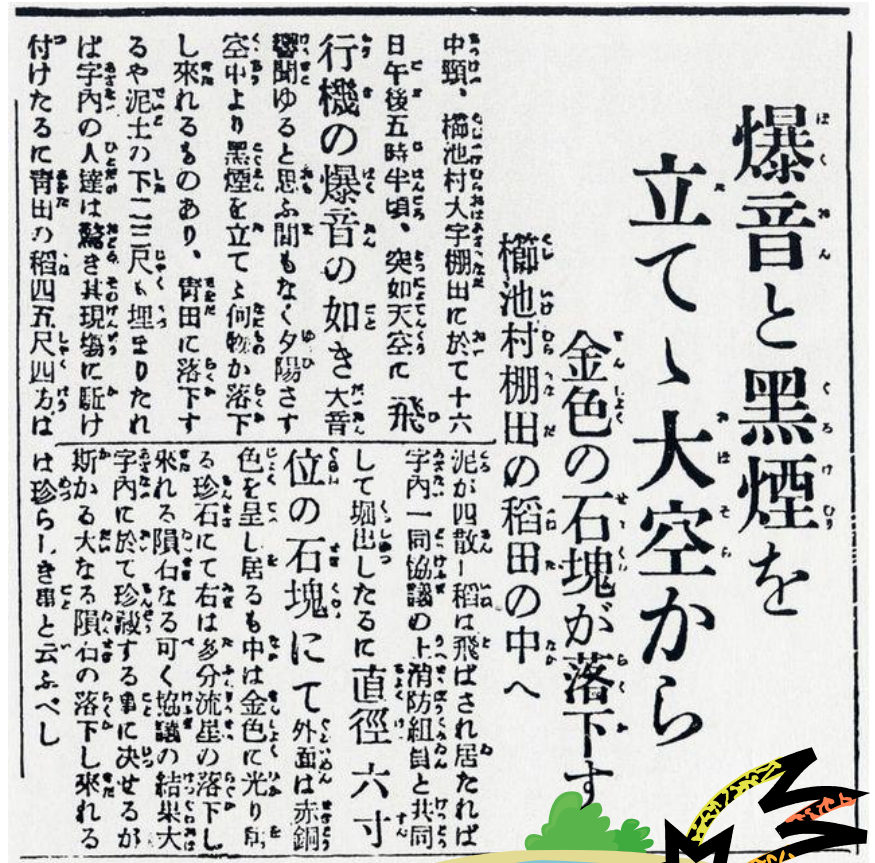 爆音と黑煙を
立てゝ大空から
金色の石塊が落下す
櫛池村棚田の稻田の中へ
中頸、櫛池村大字棚田に於て十六
日午後五時半頃、突如天空に飛
行機の爆音の如き大音
響聞ゆると思ふ間もなく夕陽さす
空中より黑煙を立てゝ何物か落下
し來れるものあり、靑田に落下す
るや泥土の下二三尺も埋まりたれ
ば字內の人達は驚き其現塲に駈け
付けたるに靑田の稻四五尺四方は
泥が四散し稻は飛ばされ居たれば
字內一同協議の上消防組員と共同
して堀出したるに直徑六寸
位の石塊にて外面は赤銅
色を呈し居るも中は金色に光り
る珍石にて右は多分流星の落下し
來れる隕石なる可く協議の結果大
字內に於て珍藏する事に決せるが
斯かる大なる隕石の落下し來れる
は珍らしき事と云ふべし